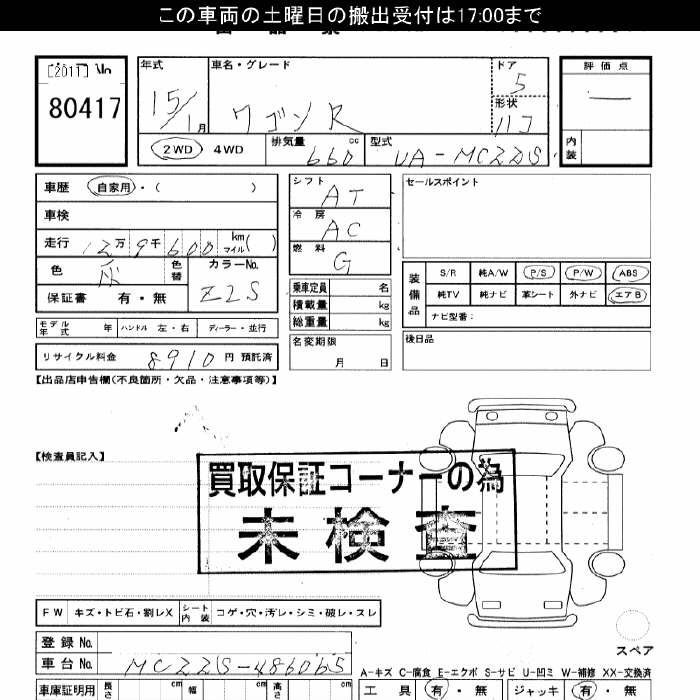 この車両の土曜日の搬出受付は17:00まで
[2011] No
80417
年式 15/1月
車名・グレード ワゴンR
ドア 5
形状 ハコ
評価点 —
内装
2WD 4WD
排気量 660 cc
型式 UA-MC22S
車歴 自家用・( )
車検
走行 12万9千600 km マイル( )
色 灰 色替 カラーNo. Z2S
保証書 有・無
モデル年式 年 ハンドル 左・右 ディーラー・並行
リサイクル料金 8910 円 預託済
シフト AT
冷房 AC
燃料 G
乗車定員 名
積載量 kg
総重量 kg
名変期限 月 日
セールスポイント
装備品 S/R 純A/W P/S P/W ABS
純TV 純ナビ 革シート 外ナビ エアB
ナビ型番:
後日品
【出品店申告欄(不良箇所・欠品・注意事項等)】
【検査員記入】
買取保証コーナーの為
未検査
FW キズ・トビ石・割レX シート内装 コゲ・穴・汚レ・シミ・破レ・スレ
スペア
登録No.
車台No. MC22S-486065
A-キズ C-腐食 E-エクボ S-サビ U-凹ミ W-補修 XX-交換済
車庫証明用 長さ cm 幅 cm 高さ cm
工具 有・無 ジャッキ 有・無